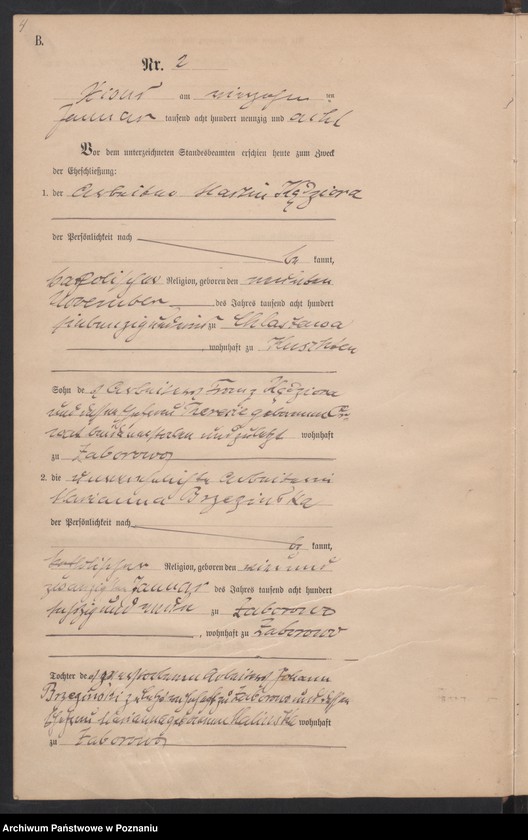 4
B.
Nr. 2
am vierzehn ten
Januar tausend acht hundert neunzig und acht
Vor dem unterzeichneten Standesbeamten erschien heute zum Zweck
der Eheschließung:
1. der Arbeiter Martin Kędziora
der Persönlichkeit nach
be kannt,
katholischer Religion, geboren den neunten
November des Jahres tausend acht hundert
siebenzig und eins zu Chlastawa
, wohnhaft zu Kuschten
Sohn des Arbeiters Franz Kędziora
und dessen Ehefrau geborenen
und zuletzt wohnhaft
zu Zaborowo
2. die unverehelichte Arbeiterin
Marianna Brzezinska
der Persönlichkeit nach
be kannt,
katholischer Religion, geboren den ein und
zwanzigsten Januar des Jahres tausend acht hundert
sechzig und neun zu Zaborowo
, wohnhaft zu Zaborowo
Tochter des verstorbenen Arbeiters Johann
Brzezinski zuletzt wohnhaft zu Zaborowo und dessen
Ehefrau Marianna geborenen Kalinski wohnhaft
zu Zaborowo
Archiwum Państwowe w Poznaniu